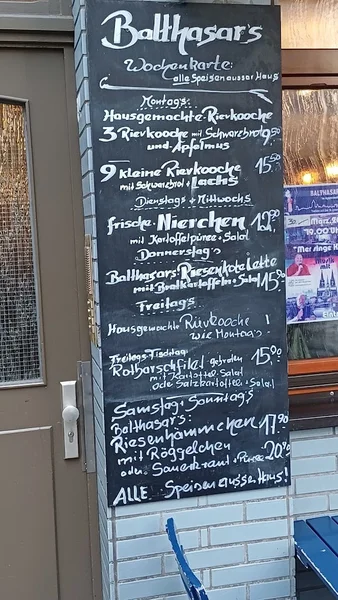 Balthasar's
Wochenkarte:
alle Speisen ausser Haus
Montags:
Hausgemachte-Rievkooche
3 Rievkooche mit Schwarzbrot 9,50
und Apfelmus
9 kleine Rievkooche 15,50
mit Schwarzbrot + Lachs
Dienstags + Mittwochs
frische Nierchen 12,90
mit Kartoffelpüree + Salat
Donnerstag's
Balthasars Riesenkotelette
mit Bratkartoffeln + Salat 15,50
Freitag's
Hausgemachte Rievkooche !
wie Montag's
Freitag-Fischtag
Rotbarschfilet gebraten 15,90
mit Kartoffel Salat
oder Salzkartoffel + Salat
Samstag + Sonntag's
Balthasar's:
Riesenhämmchen 17,90
mit Röggelchen
oder Sauerkraut + Püree 20,90
ALLE Speisen ausser Haus!
BALTHASAR
19.00 UH